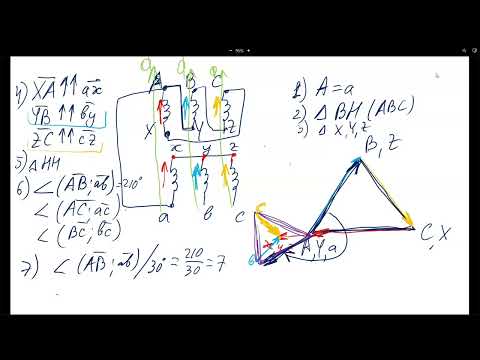 4) XA ↑↑ ax
YB ↑↑ by
ZC ↑↑ cz
5) Δ HH
6) ∠ (AB; ab) = 210°
∠ (AC; ac)
∠ (BC; bc)
7) ∠ (AB; ab) / 30° = 210/30 = 7
A B C
X Y Z
x y z
a b c
1) A = a
2) Δ BH (ABC)
3) Δ X, Y, Z
B, Z
C, X
A, Y, a